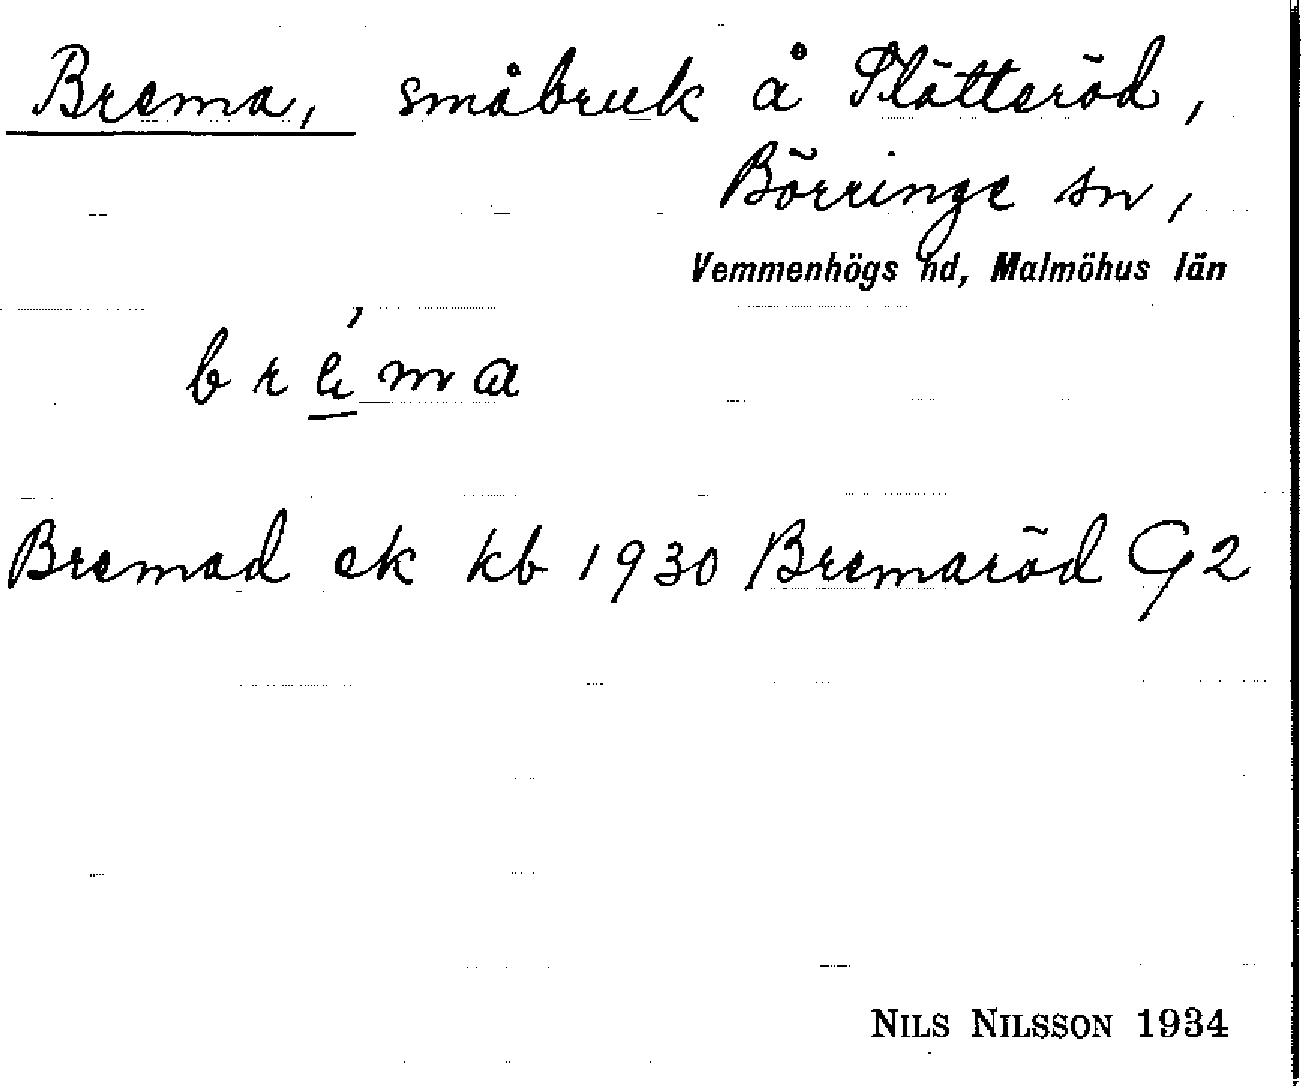 Brema, småbruk å Slätteröd,
Börringe sn,
Vemmenhögs hd, Malmöhus län
Bremad ek kb 1930 Bremaröd G2
NILS NILSSON 1934